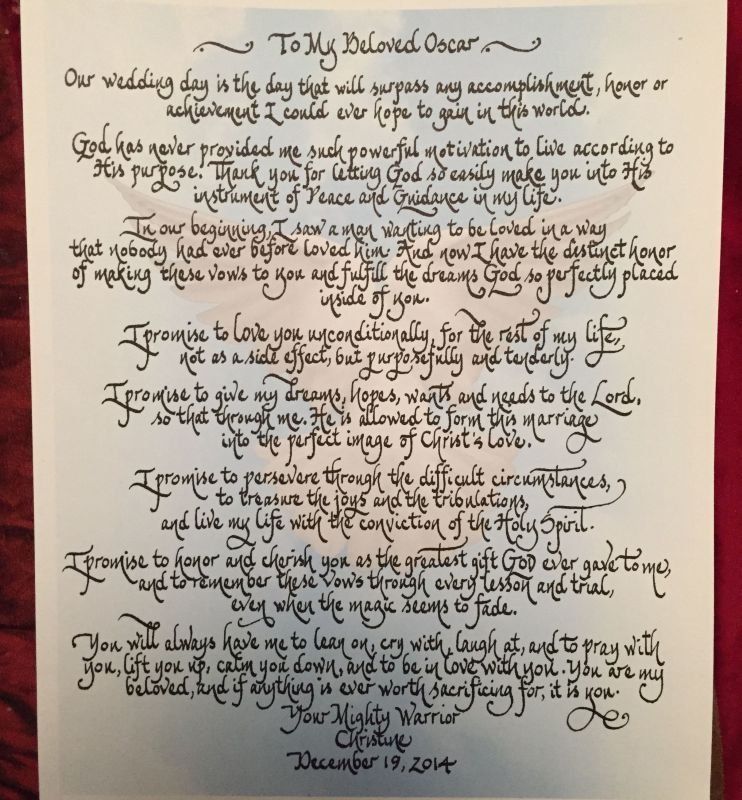 To My Beloved Oscar
Our wedding day is the day that will surpass any accomplishment, honor or
achievement I could ever hope to gain in this world.
God has never provided me such powerful motivation to live according to
His purpose. Thank you for letting God so easily make you into His
instrument of Peace and Guidance in my life.
In our beginning, I saw a man wanting to be loved in a way
that nobody had ever before loved him. And now I have the distinct honor
of making these vows to you and fulfill the dreams God so perfectly placed
inside of you.
I promise to love you unconditionally, for the rest of my life,
not as a side effect, but purposefully and tenderly.
I promise to give my dreams, hopes, wants and needs to the Lord,
so that through me. He is allowed to form this marriage
into the perfect image of Christ's love.
I promise to persevere through the difficult circumstances,
to treasure the joys and the tribulations,
and live my life with the conviction of the Holy Spirit.
I promise to honor and cherish you as the greatest gift God ever gave to me,
and to remember these vows through every lesson and trial,
even when the magic seems to fade.
You will always have me to lean on, cry with, laugh at, and to pray with
you, lift you up, calm you down, and to be in love with you. You are my
beloved, and if anything is ever worth sacrificing for, it is you.
Your Mighty Warrior
Christine
December 19, 2014